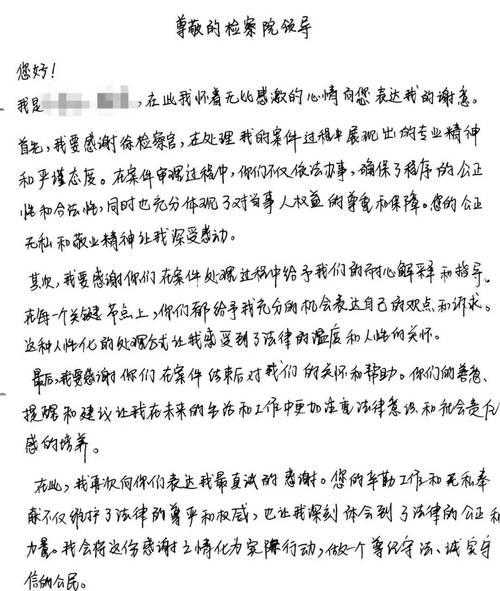 尊敬的检察院领导
您好！
我是，在此我怀着无比感激的心情向您表达我的谢意。
首先，我要感谢徐检察官，在处理我的案件过程中展现出的专业精神
和严谨态度。在案件审理过程中，你们不仅依法办事，确保了程序的公正
性和合法性，同时也充分体现了对当事人权益的尊重和保障。您的公正
无私和敬业精神让我深受感动。
其次，我要感谢你们在案件处理过程中给予我们的耐心解释和指导。
在每一个关键节点上，你们都给予我充分的机会表达自己的观点和诉求。
这种人性化的处理方式让我感受到了法律的温度和人性的关怀。
最后，我要感谢你们在案件结束后对我们的关怀和帮助。你们的善意、
提醒和建议让我在未来的生活和工作中更加注重法律意识和社会责任
感的培养。
在此，我再次向你们表达我最真诚的感谢。您的辛勤工作和无私奉
献不仅维护了法律的尊严和权威，也让我深刻体会到了法律的公正和
力量。我会将这份感谢之情化为实际行动，做一个遵纪守法、诚实守
信的公民。